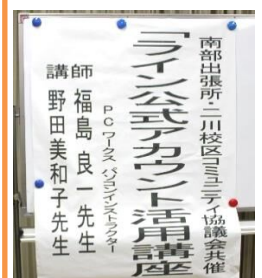 南部出張所・二川校区コミュニティ協議会共催
「ライン公式アカウント活用講座
PCワークス パソコンインストラクター
講師 福島 良一先生
野田美和子先生